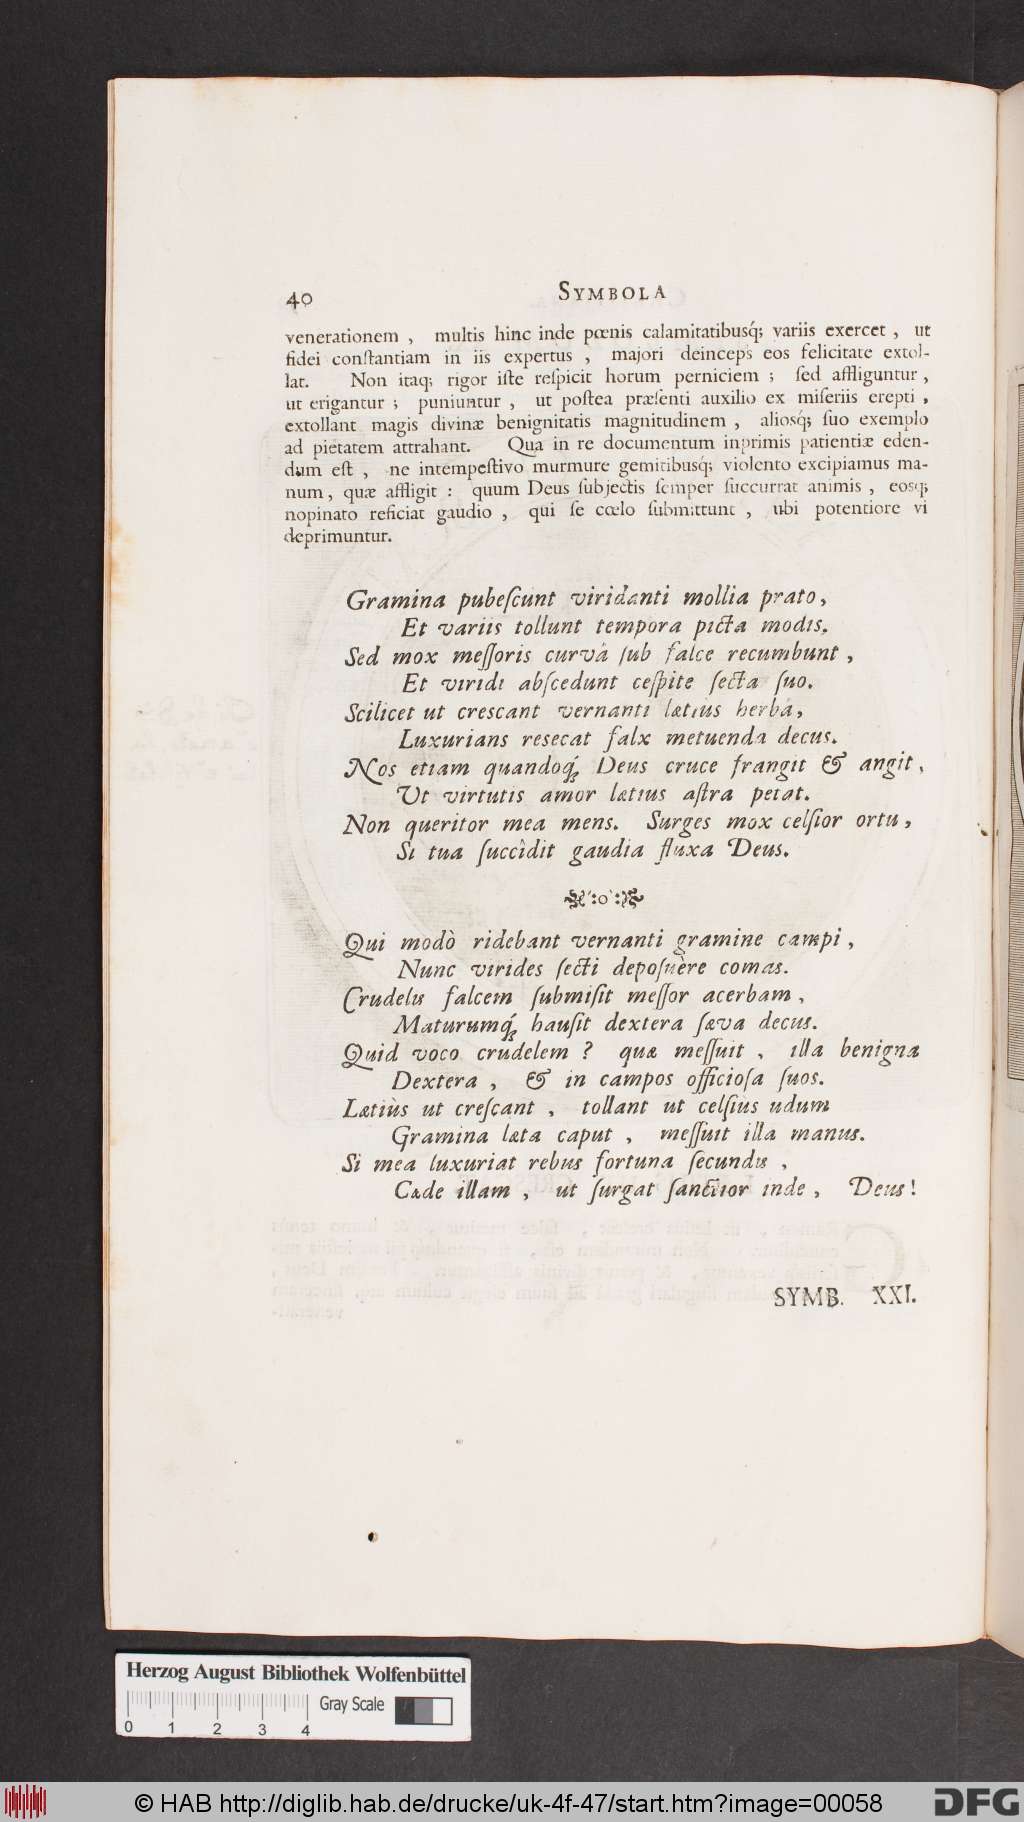 40 SYMBOLA
venerationem , multis hinc inde pœnis calamitatibusq́; variis exercet , ut
fidei conſtantiam in iis expertus , majori deinceps eos felicitate extol-
lat. Non itaq; rigor iſte reſpicit horum perniciem ; ſed affliguntur ,
ut erigantur ; puniuntur , ut poſtea præſenti auxilio ex miſeriis erepti ,
extollant magis divinæ benignitatis magnitudinem , aliosq́; ſuo exemplo
ad pietatem attrahant. Qua in re documentum inprimis patientiæ eden-
dum eſt , ne intempeſtivo murmure gemitibusq́; violento excipiamus ma-
num, quæ affligit : quum Deus ſubjectis ſemper ſuccurrat animis , eosq;
nopinato reficiat gaudio , qui ſe cœlo ſubmittunt , ubi potentiore vi
deprimuntur.
Gramina pubeſcunt viridanti mollia prato,
Et variis tollunt tempora picta modis.
Sed mox meſſoris curvâ ſub falce recumbunt ,
Et viridi abſcedunt ceſpite ſecta ſuo.
Scilicet ut crescant vernanti lætius herbâ,
Luxurians resecat falx metuenda decus.
Nos etiam quandoq́; Deus cruce frangit & angit,
Ut virtutis amor lætius aſtra petat.
Non queritor mea mens. Surges mox celſior ortu ,
Si tua ſuccîdit gaudia fluxa Deus.
:o:
Qui modò ridebant vernanti gramine campi ,
Nunc virides ſecti depoſuère comas.
Crudelis falcem ſubmiſit meſſor acerbam ,
Maturumq́; hauſit dextera ſæva decus.
Quid voco crudelem ? quæ meſſuit , illa benigna
Dextera , & in campos officioſa ſuos.
Lætiùs ut creſcant , tollant ut celſius udum
Gramina læta caput , meſſuit illa manus.
Si mea luxuriat rebus fortuna ſecundis ,
Cæde illam , ut ſurgat ſanctior inde , Deus!
SYMB. XXI.
Herzog August Bibliothek Wolfenbüttel
Gray Scale
0 1 2 3 4
© HAB http://diglib.hab.de/drucke/uk-4f-47/start.htm?image=00058
DFG